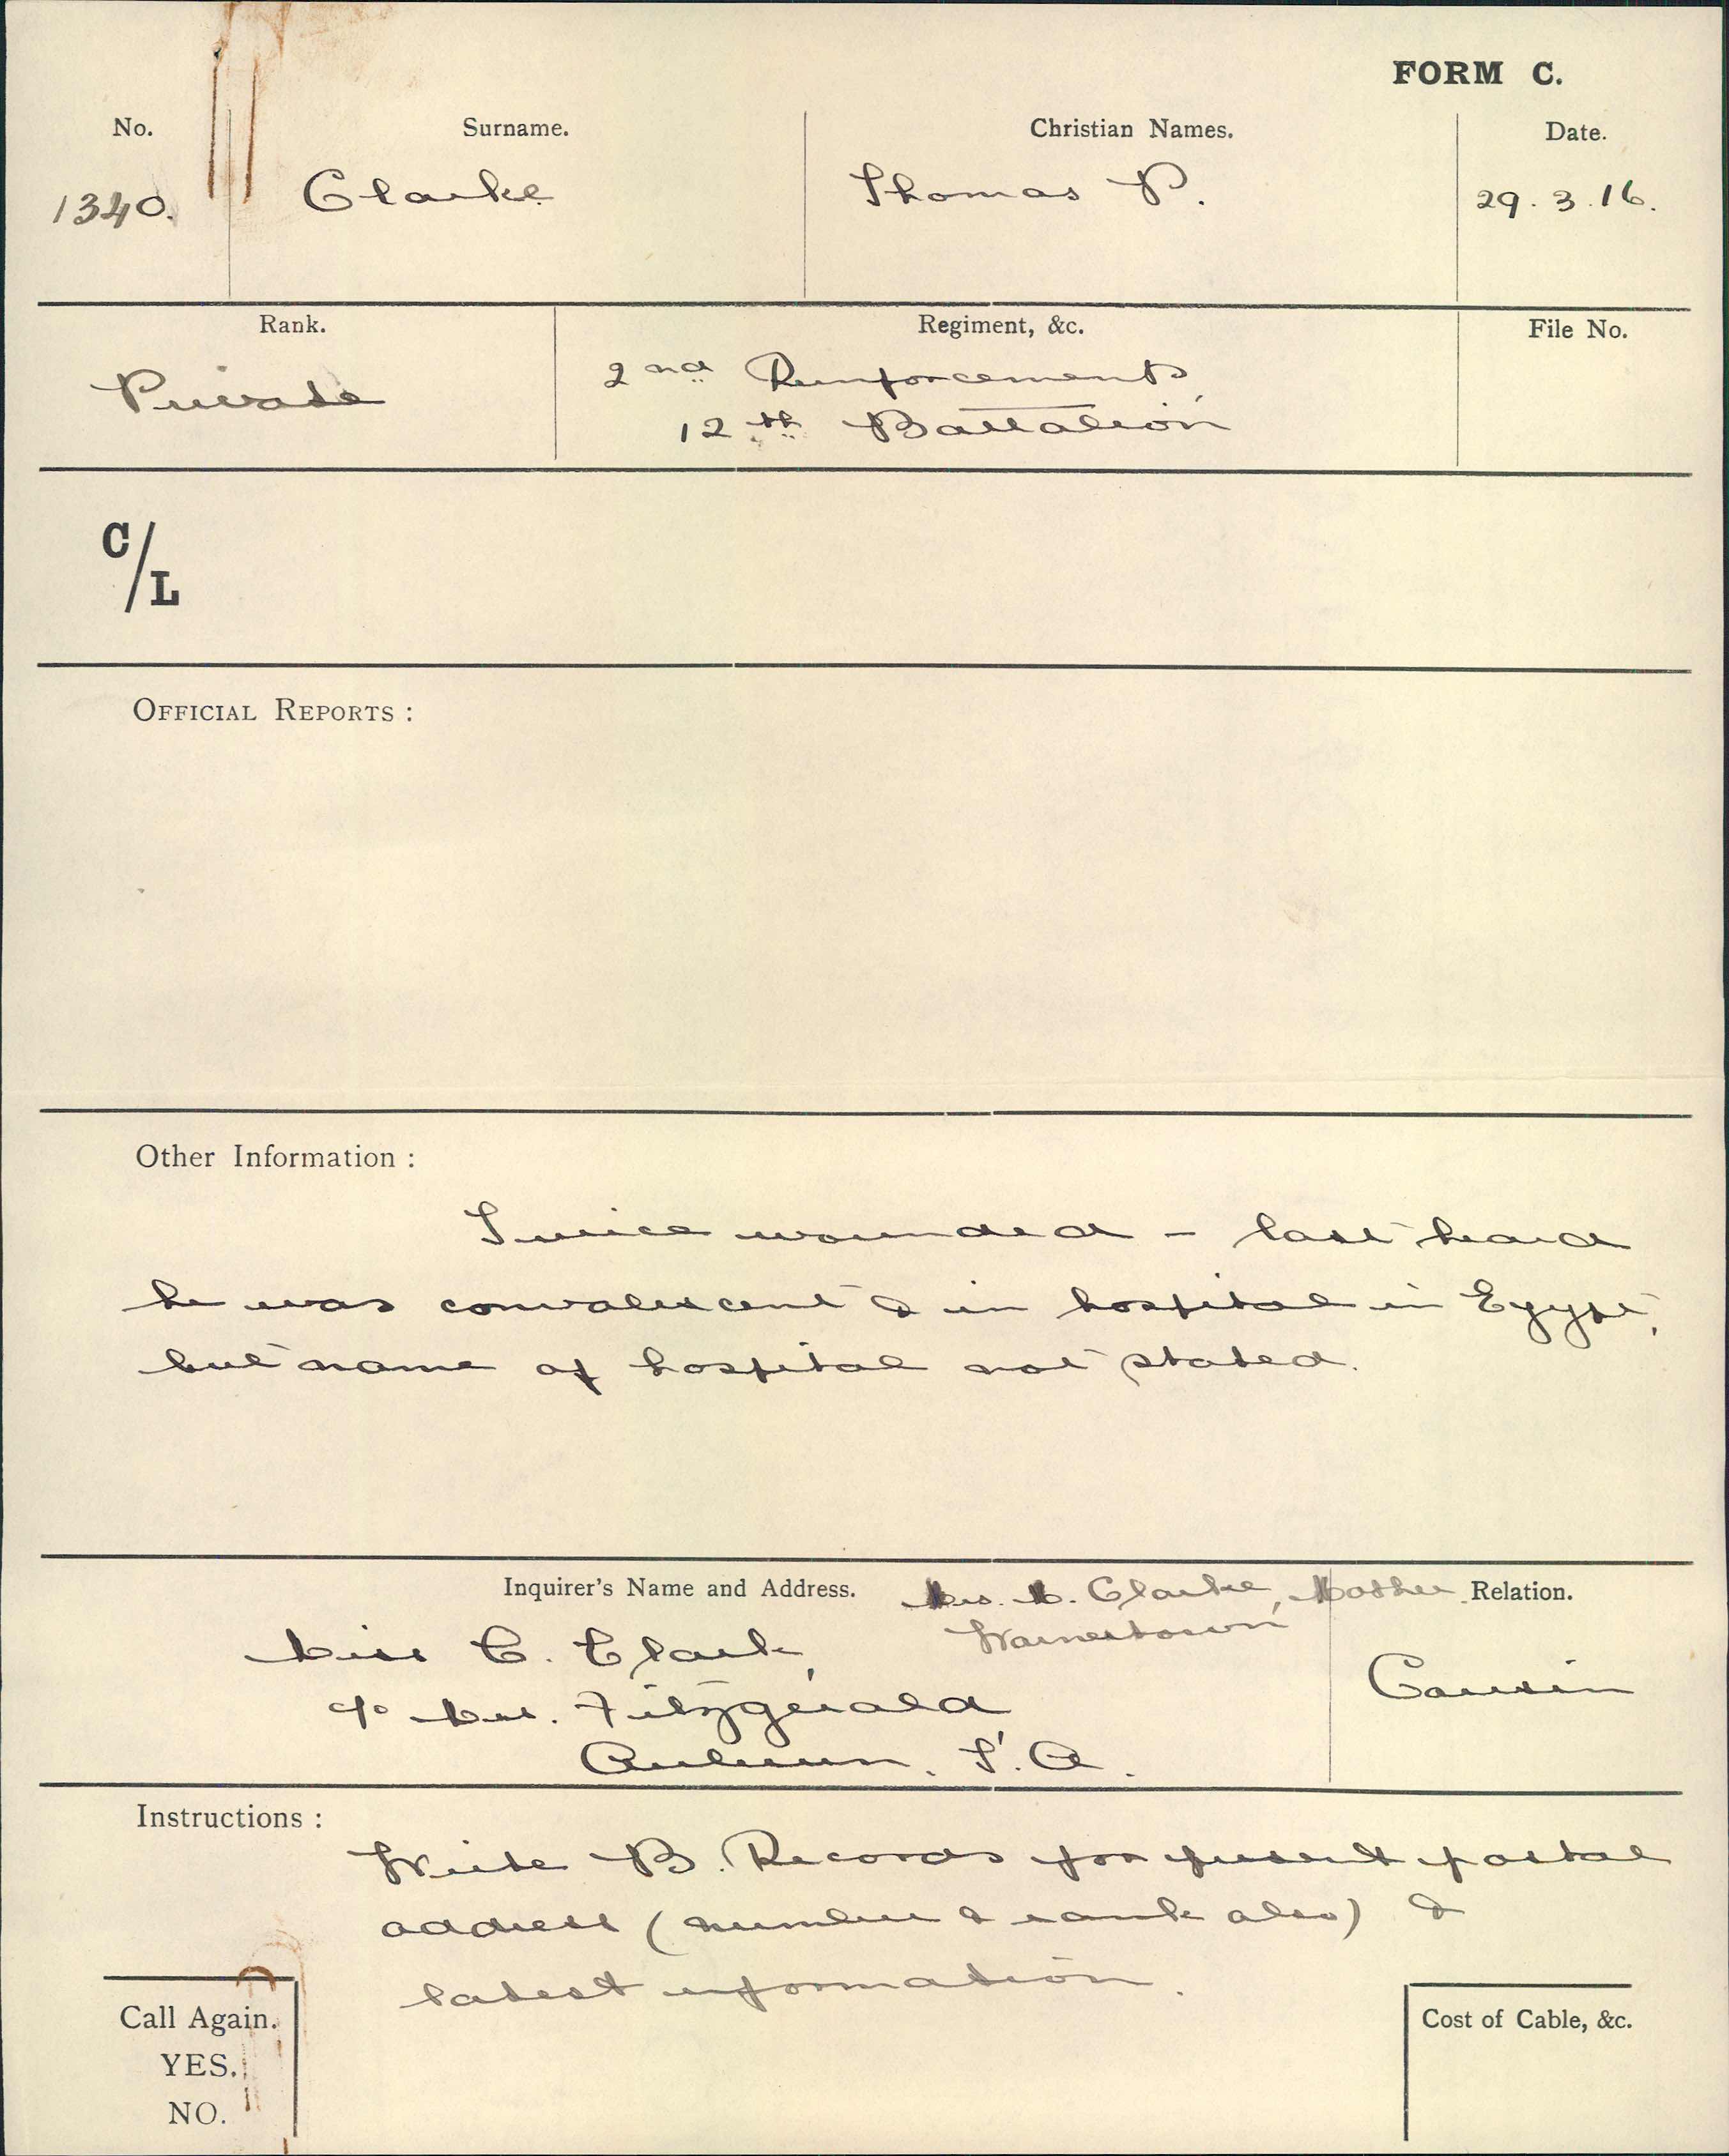 FORM C.
No. Surname. Christian Names. Date.
1340. Clarke Thomas P. 29.3.16.
Rank. Regiment, &c. File No.
Private 2nd Reinforcements,
12th Battalion
C/L
OFFICIAL REPORTS :
Other Information :
Twice wounded - last heard
he was convalescent & in hospital in Egypt,
but name of hospital not stated.
Inquirer's Name and Address. Mrs. M. Clarke, Mother Relation.
Warnertown
Miss C. Clark, Cousin
c/o Mrs. Fitzgerald
Auburn. S.A.
Instructions :
Write B. Records for present postal
address (number & rank also) &
latest information.
Call Again. Cost of Cable, &c.
YES.
NO.